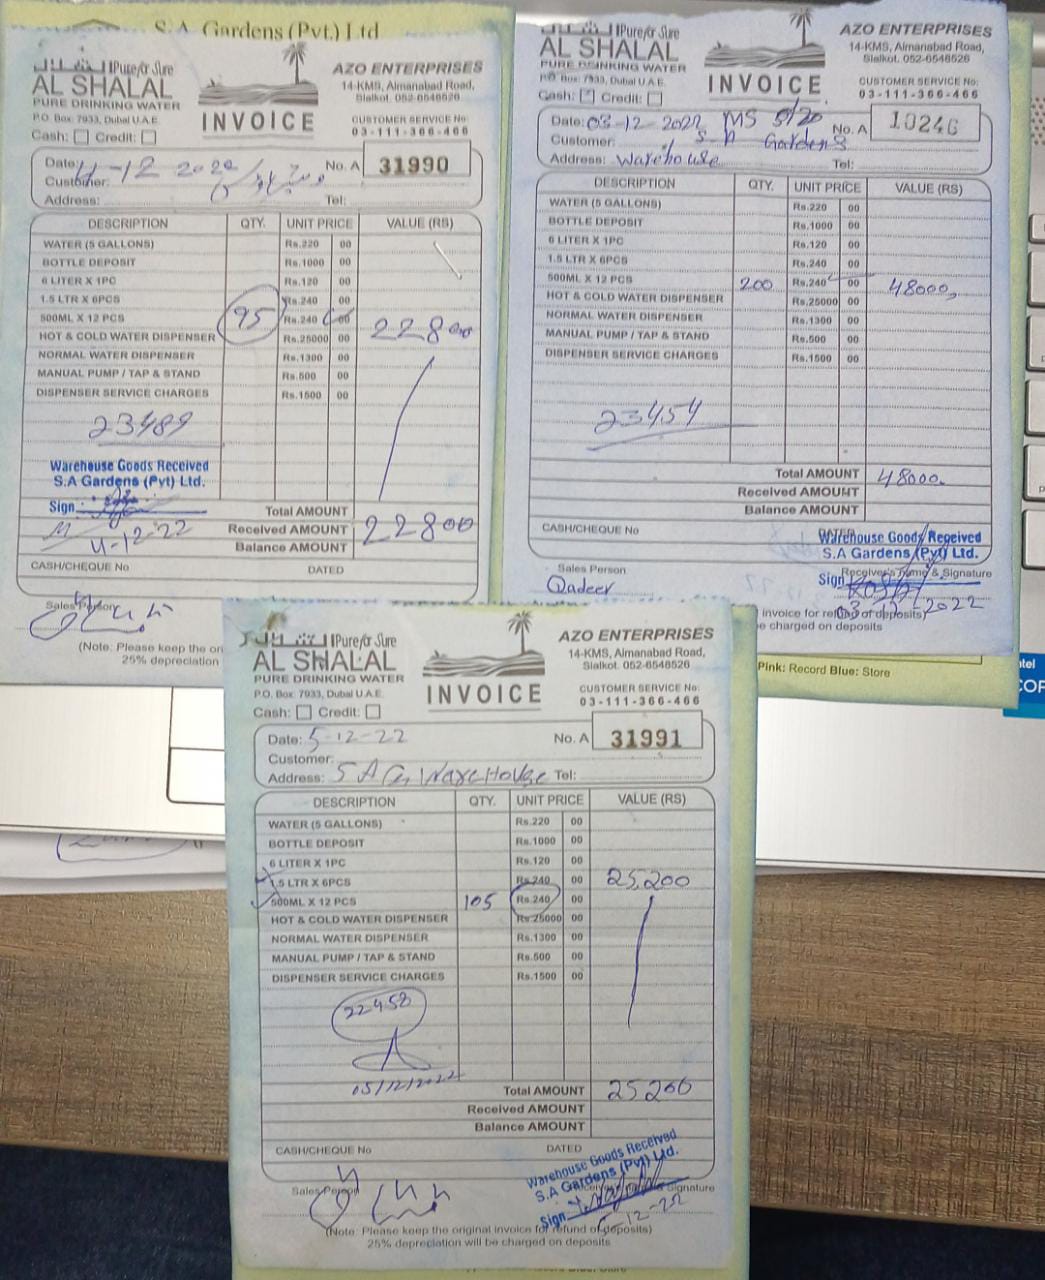 S.A. Gardens (Pvt.) Ltd
Pure for Sure
AL SHALAL
PURE DRINKING WATER
P.O. Box: 7933, Dubai U.A.E.
Cash: Credit:
INVOICE
AZO ENTERPRISES
14-KMS, Almanabad Road,
Sialkot. 052-6548526
CUSTOMER SERVICE No:
03-111-366-466
Date: 4-12 2022
No. A 31990
Customer:
Address: Tel:
DESCRIPTION QTY. UNIT PRICE VALUE (RS)
WATER (5 GALLONS) Rs.220 00
BOTTLE DEPOSIT Rs.1000 00
6 LITER X 1PC Rs.120 00
1.5 LTR X 6PCS Rs.240 00
500ML X 12 PCS 95 Rs.240 00 22800
HOT & COLD WATER DISPENSER Rs.25000 00
NORMAL WATER DISPENSER Rs.1300 00
MANUAL PUMP / TAP & STAND Rs.500 00
DISPENSER SERVICE CHARGES Rs.1500 00
23489
Warehouse Goods Received
S.A Gardens (Pvt) Ltd.
Sign
4-12-22
Total AMOUNT
Received AMOUNT 22800
Balance AMOUNT
CASH/CHEQUE No DATED
Sales Person
(Note: Please keep the ori
25% depreciation
Pure for Sure
AL SHALAL
PURE DRINKING WATER
P.O. Box: 7933, Dubai U.A.E.
Cash: Credit:
INVOICE
AZO ENTERPRISES
14-KMS, Almanabad Road,
Sialkot. 052-6548526
CUSTOMER SERVICE No:
03-111-366-466
Date: 03-12-2022 MS 5/20
No. A 10246
Customer: Gardens
Address: Warehouse Tel:
DESCRIPTION QTY. UNIT PRICE VALUE (RS)
WATER (5 GALLONS) Rs.220 00
BOTTLE DEPOSIT Rs.1000 00
6 LITER X 1PC Rs.120 00
1.5 LTR X 6PCS Rs.240 00
500ML X 12 PCS 200 Rs.240 00 48000
HOT & COLD WATER DISPENSER Rs.25000 00
NORMAL WATER DISPENSER Rs.1300 00
MANUAL PUMP / TAP & STAND Rs.500 00
DISPENSER SERVICE CHARGES Rs.1500 00
23454
Total AMOUNT 48000
Received AMOUNT
Balance AMOUNT
CASH/CHEQUE No DATED
Warehouse Goods Received
S.A Gardens (Pvt) Ltd.
Sales Person Receiver's Name & Signature
Qadeer
Sign
03-12-2022
invoice for refund of deposits)
be charged on deposits
Pink: Record Blue: Store
intel
COR
Pure for Sure
AL SHALAL
PURE DRINKING WATER
P.O. Box: 7933, Dubai U.A.E.
Cash: Credit:
INVOICE
AZO ENTERPRISES
14-KMS, Almanabad Road,
Sialkot. 052-6548526
CUSTOMER SERVICE No:
03-111-366-466
Date: 5-12-22
No. A 31991
Customer:
Address: S A G WareHouse Tel:
DESCRIPTION QTY. UNIT PRICE VALUE (RS)
WATER (5 GALLONS) Rs.220 00
BOTTLE DEPOSIT Rs.1000 00
6 LITER X 1PC Rs.120 00
1.5 LTR X 6PCS Rs.240 00 25200
500ML X 12 PCS 105 Rs.240 00
HOT & COLD WATER DISPENSER Rs.25000 00
NORMAL WATER DISPENSER Rs.1300 00
MANUAL PUMP / TAP & STAND Rs.500 00
DISPENSER SERVICE CHARGES Rs.1500 00
22458
05/12/2022
Total AMOUNT 25200
Received AMOUNT
Balance AMOUNT
CASH/CHEQUE No DATED
Warehouse Goods Received
S.A Gardens (Pvt) Ltd.
Sales Person Signature
Sign
5-12-22
(Note: Please keep the original invoice for refund of deposits)
25% depreciation will be charged on deposits